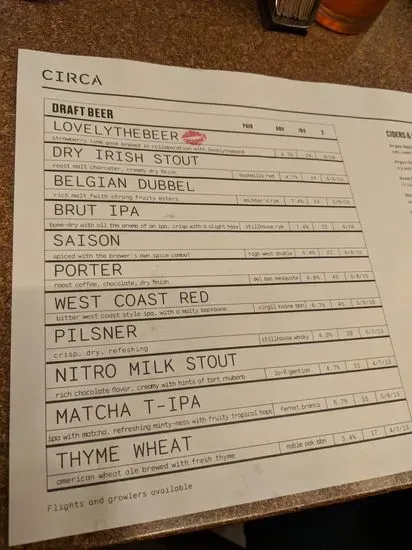 CIRCA
DRAFT BEER PAIR ABV IBU $
LOVELYTHEBEER
strawberry lime gose brewed in collaboration with lovelytheband 4.7%
DRY IRISH STOUT
roast malt character, creamy dry finish bushmills red 4.7%
BELGIAN DUBBEL
rich malt fwith strong fruity esters michter's rye 7.4%
BRUT IPA
bone-dry with all the aroma of an ipa, crisp with a slight haze stillhouse rye 7.4%
SAISON
spiced with the brewer's own spice combo! high west double 5.4% 21
PORTER
roast coffee, chocolate, dry finish del bac mesquite 4.8% 45 5/8/15
WEST COAST RED
bitter west coast style ipa, with a malty backbone virgil kaine bbn 6.7% 45 5/8/15
PILSNER
crisp, dry, refeshing stillhouse whsky 4.5% 28 5/7/15
NITRO MILK STOUT
rich chocolate flavor, creamy with hints of tart rhubarb lo-fi gentian 4.7% 31 4/7/15
MATCHA T-IPA
ipa with matcha, refreshing minty-ness with fruity tropical hops fernet branca 6.7% 55 5/8/15
THYME WHEAT
american wheat ale brewed with fresh thyme noble oak bbn 5.4% 17 4/7/15
Flights and growlers available
CIDERS &